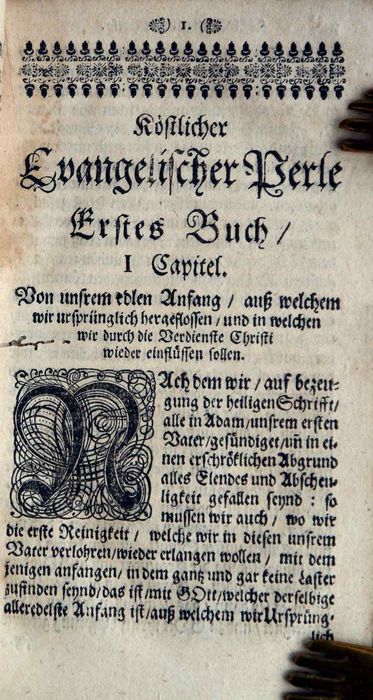 1.
Köstlicher
Evangelischer Perle
Erstes Buch /
I Capitel.
Von unsrem edlen Anfang / auß welchem
wir ursprünglich hergeflossen / und in welchen
wir durch die Verdienste Christi
wieder einflüssen sollen.
NAch dem wir / auf bezeu-
gung der heiligen Schrifft /
alle in Adam / unsrem ersten
Vater / gesündiget / uñ in ei-
nen erschröklichen Abgrund
alles Elendes und Abscheu-
ligkeit gefallen seynd : so
mussen wir auch / wo wir
die erste Reinigkeit / welche wir in diesen unsrem
Vater verlohren / wieder erlangen wollen / mit dem
jenigen anfangen / in dem gantz und gar keine Laster
zufinden seynd / das ist / mit GOtt / welcher derselbige
alleredelste Anfang ist / auß welchem wir Ursprüng-
lich